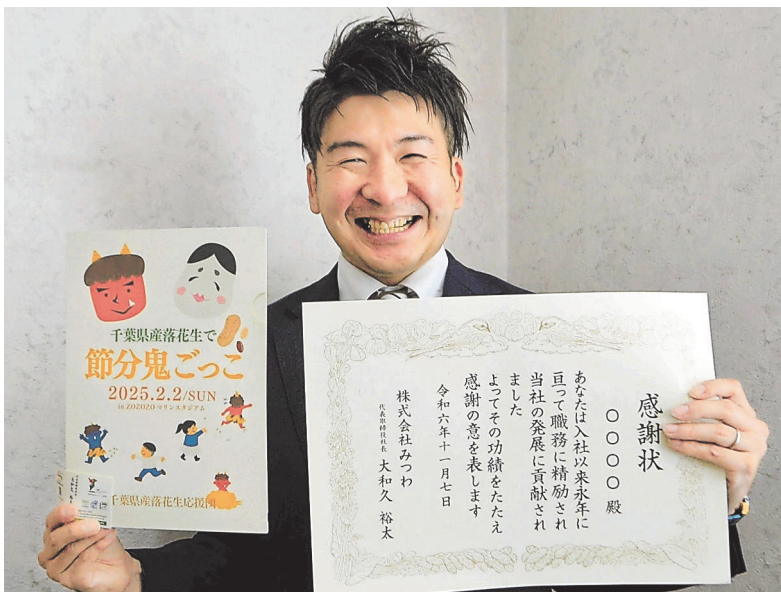 千葉県産落花生で
節分鬼ごっこ
2025.2.2/SUN
in ZOZOZOマリンスタジアム
千葉県産落花生応援団
感謝状
○○○○ 殿
あなたは入社以来永年に
亘って職務に精励され
当社の発展に貢献され
ました
よってその功績をたたえ
感謝の意を表します
令和六年十一月七日
株式会社みつわ
代表取締役社長 大和久 裕太